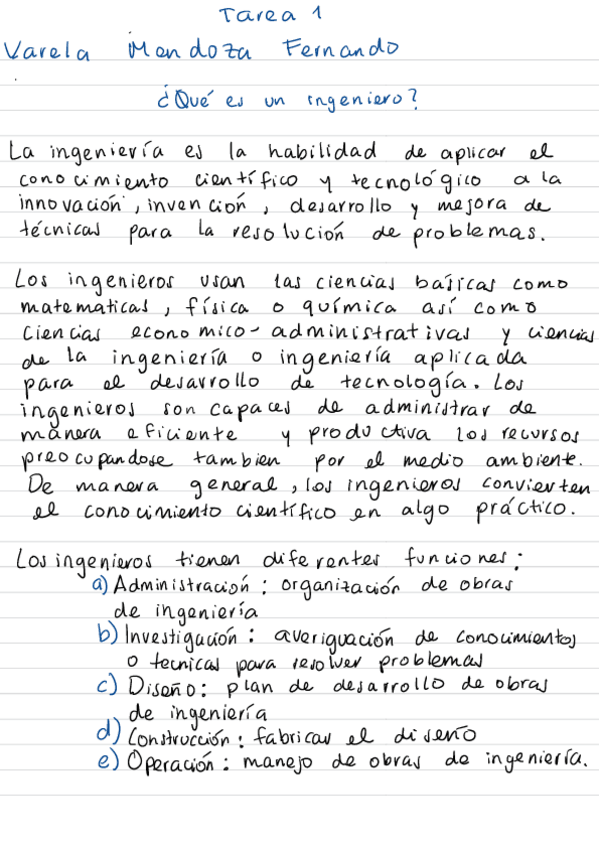 Tarea 1
Varela Mendoza Fernando
¿Qué es un ingeniero?
La ingeniería es la habilidad de aplicar el
conocimiento científico y tecnológico a la
innovación, invención, desarrollo y mejora de
técnicas para la resolución de problemas.
Los ingenieros usan las ciencias básicas como
matematicas, física o química así como
ciencias economico-administrativas y ciencias
de la ingeniería o ingeniería aplicada
para el desarrollo de tecnología. Los
ingenieros son capaces de administrar de
manera eficiente y productiva los recursos
preocupandose tambien por el medio ambiente.
De manera general, los ingenieros convierten
el conocimiento científico en algo práctico.
Los ingenieros tienen diferentes funciones:
a) Administración: organización de obras
de ingeniería
b) Investigación: averiguación de conocimientos
o tecnicas para resolver problemas
c) Diseño: plan de desarrollo de obras
de ingeniería
d) Construcción: fabricar el diseño
e) Operación: manejo de obras de ingeniería.